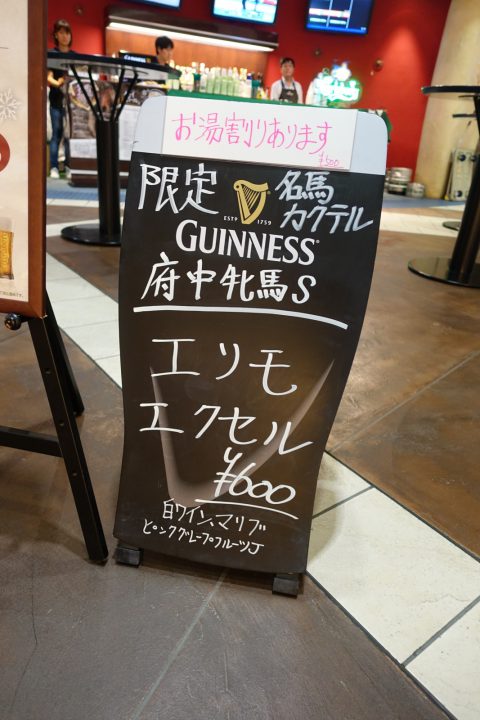 GUINNESS
お湯割りあります
¥500
限定
名馬
カクテル
ESTD 1759
GUINNESS
府中牝馬S
エリモ
エクセル
¥600
白ワイン、マリブ
ピンクグレープフルーツJ